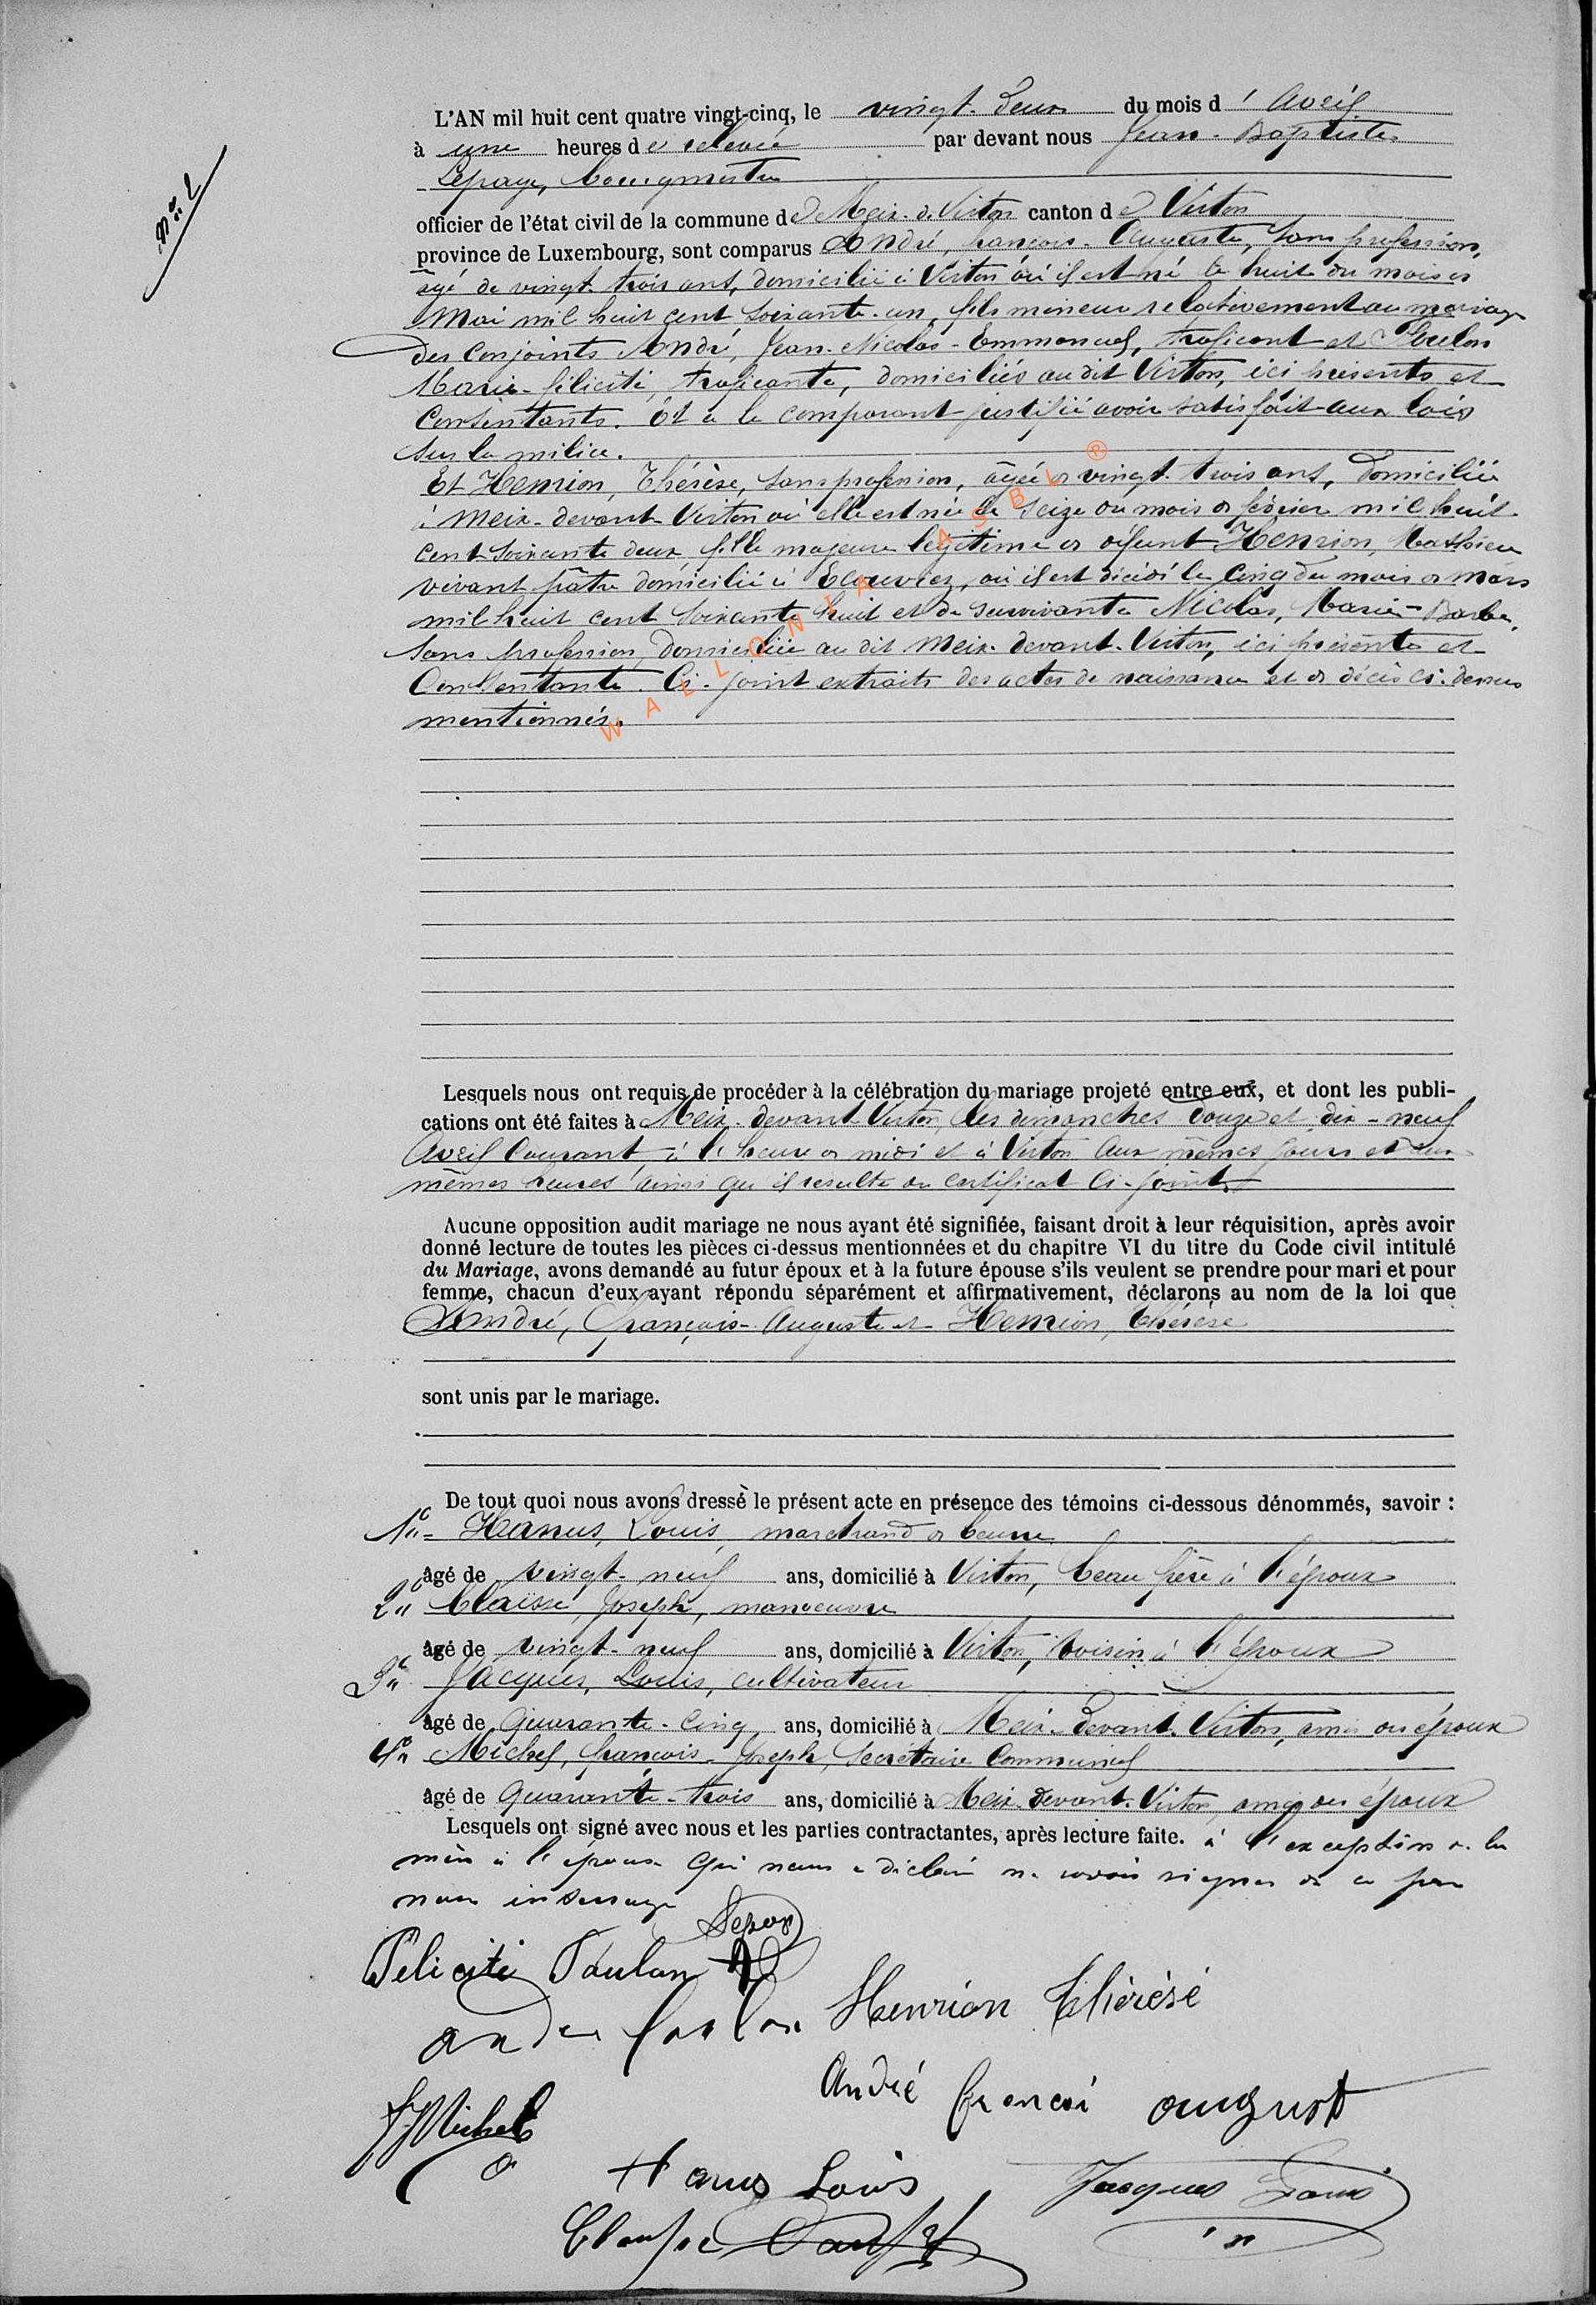 N° 2
L'AN mil huit cent quatre vingt-cinq, le vingt-deux du mois d'Avril
à une heures de relevée par devant nous Jean-Baptiste
Lepage, bourgmestre
officier de l'état civil de la commune de Meix-d.-Virton canton de Virton
province de Luxembourg, sont comparus André, françois-Auguste, sans profession,
âgé de vingt-trois ans, domicilié à Virton où il est né le huit du mois de
Mai mil huit cent soixante-un, fils mineur relativement au mariage
des conjoints André, Jean-Nicolas-Emmanuel, traficant et Foulon
Marie-félicité, traficante, domiciliés au dit Virton, ici présents et
Consentants. Et a le comparant justifié avoir satisfait aux lois
sur la milice.
Et Henrion, Thérèse, sans profession, âgée de vingt-trois ans, domiciliée
à Meix-devant-Virton où elle est née le seize du mois de février mil huit
cent soixante deux, fille majeure légitime de défunt Henrion, Mathieu
vivant pâtre domicilié à Ecouviez, où il est décédé le cinq du mois de mars
mil huit cent soixante huit et de survivante Nicolas, Marie-Barbe,
sans profession, domiciliée au dit Meix-devant-Virton, ici présente et
Consentante. Ci-joint extraits des actes de naissance et de décès ci-dessus
mentionnés.
WALLONIA ASBL ®
Lesquels nous ont requis de procéder à la célébration du mariage projeté entre eux, et dont les publi-
cations ont été faites à Meix-devant-Virton, les dimanches douze et dix-neuf
Avril Courant à l'heure de midi et à Virton aux mêmes jours et aux
mêmes heures ainsi qu'il resulte du certificat ci-joint
Aucune opposition audit mariage ne nous ayant été signifiée, faisant droit à leur réquisition, après avoir
donné lecture de toutes les pièces ci-dessus mentionnées et du chapitre VI du titre du Code civil intitulé
du Mariage, avons demandé au futur époux et à la future épouse s'ils veulent se prendre pour mari et pour
femme, chacun d'eux ayant répondu séparément et affirmativement, déclarons au nom de la loi que
André, François-Auguste et Henrion, Thérèse
sont unis par le mariage.
De tout quoi nous avons dressé le présent acte en présence des témoins ci-dessous dénommés, savoir :
1° Hanus, Louis, marchand de beurre
âgé de vingt-neuf ans, domicilié à Virton, beau frère à l'époux
2° Claisse, Joseph, manoeuvre
âgé de vingt-neuf ans, domicilié à Virton, voisin à l'époux
3° Jacques, Louis, cultivateur
âgé de Quarante-cinq ans, domicilié à Meix-devant-Virton, ami des époux
4° Michel, françois-Joseph, Secrétaire Communal
âgé de quarante-trois ans, domicilié à Meix-devant-Virton, ami des époux
Lesquels ont signé avec nous et les parties contractantes, après lecture faite. à l'exception de la
mère à l'épouse qui nous a déclaré ne savoir signer de ce par
nous
Lepage
Félicité Foulon
Henrion Thérèse
André françoi august
FJ Michel
Hanus Louis
Jacques Louis